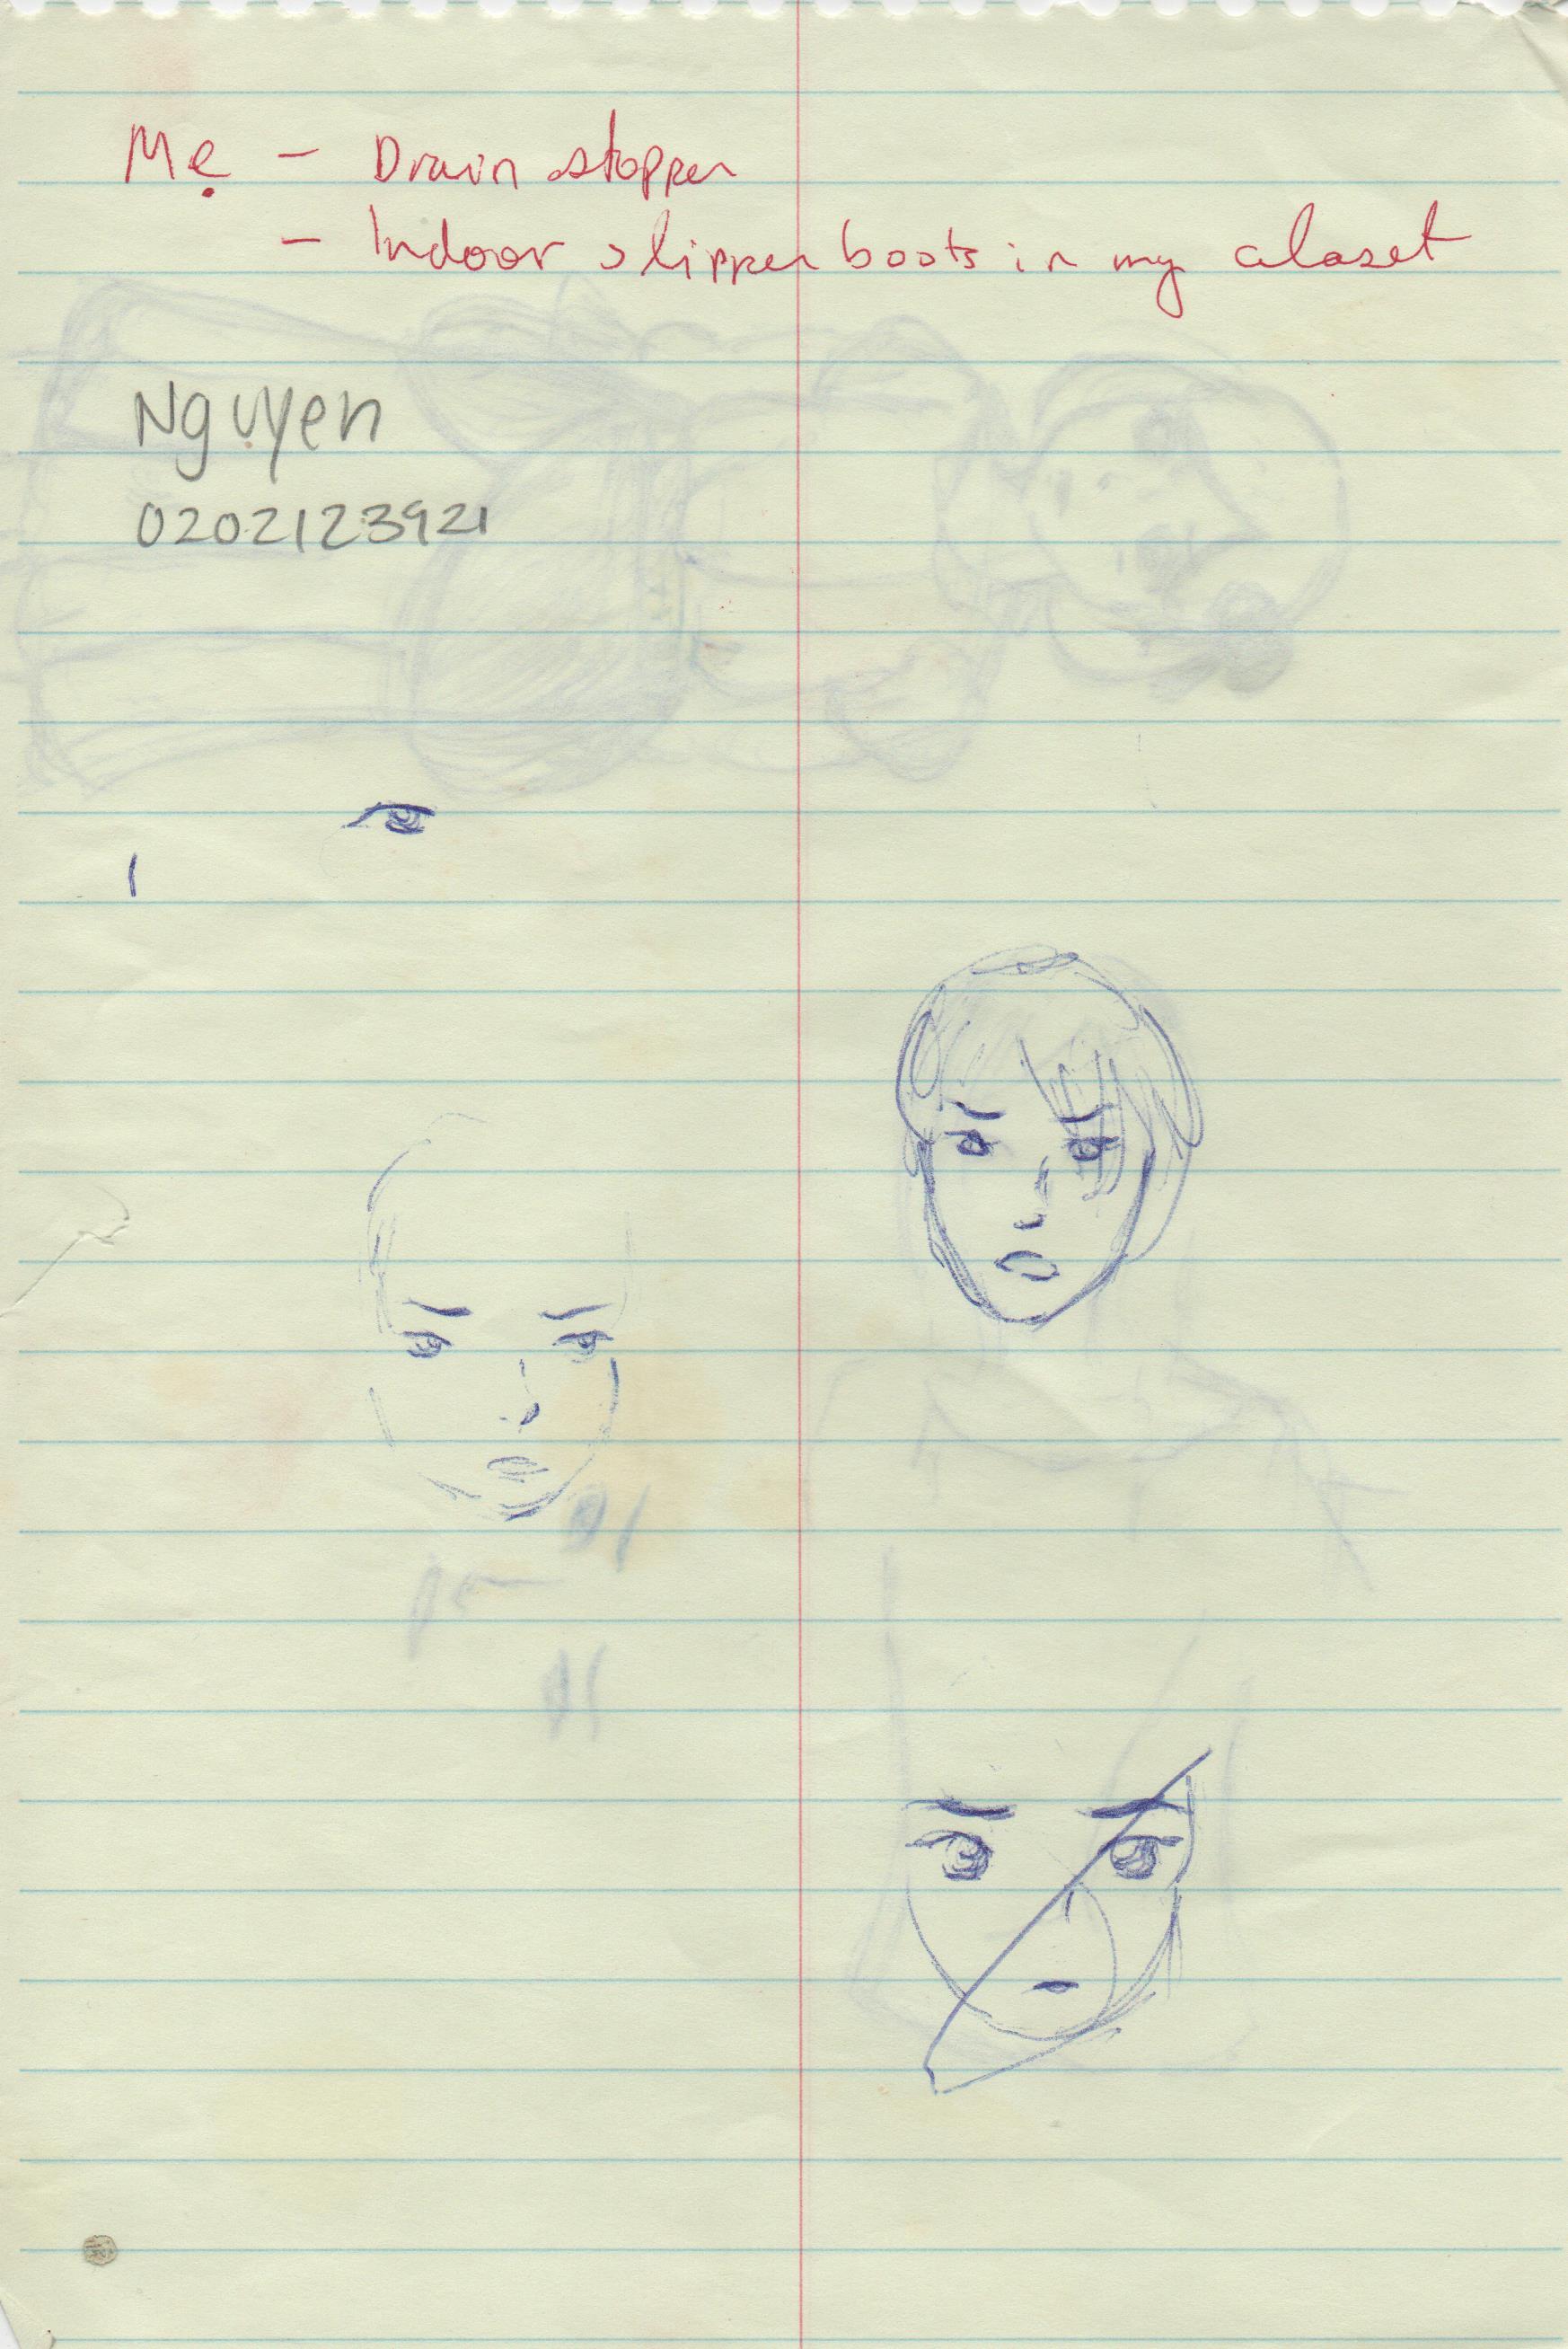 Mẹ - Drain stopper
- Indoor slipper boots in my closet
Nguyen
0202123921